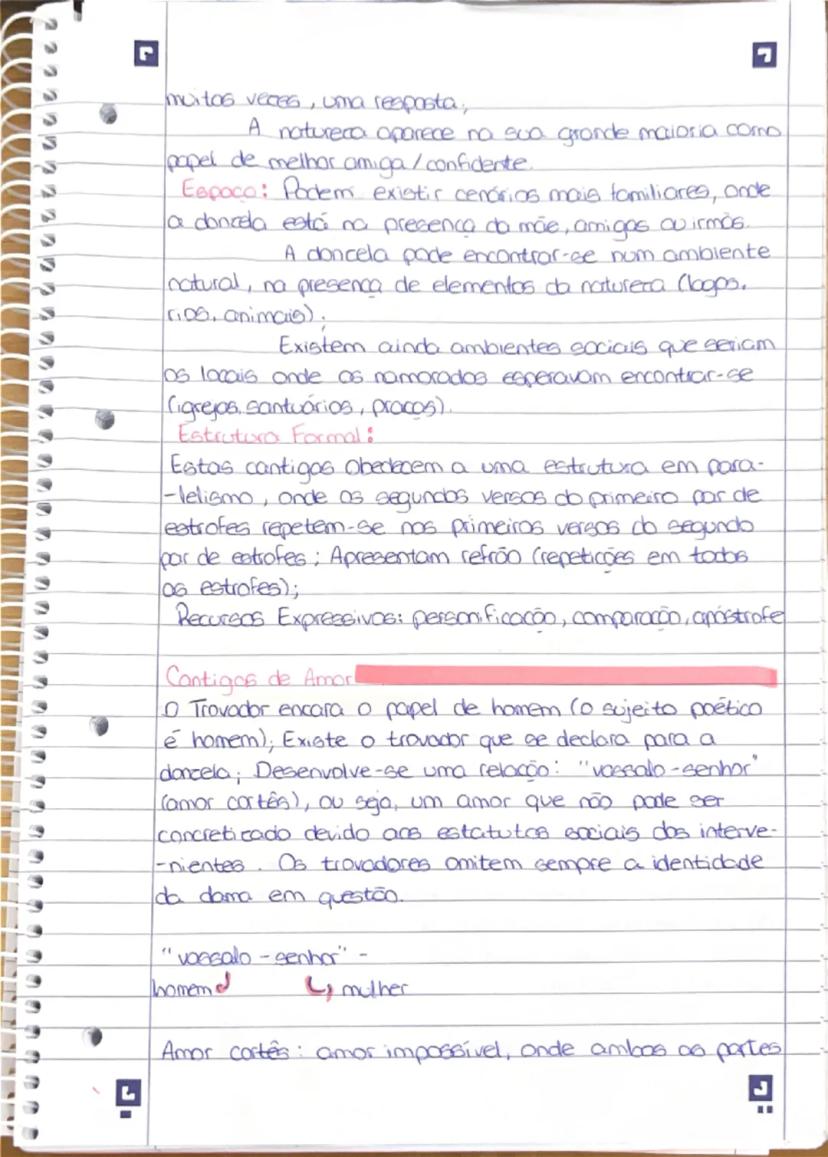 muitas vezes, uma resposta;
A natureza aparece na sua grande maioria como
papel de melhor amiga/confidente.
Espaço: Podem existir cenários mais familiares, onde
a donzela está na presença da mãe, amigas ou irmãs.
A donzela pode encontrar-se num ambiente
natural, na presença de elementos da natureza (lagos,
rios, animais);
Existem ainda ambientes sociais que seriam
os locais onde os namorados esperavam encontrar-se
(igrejas, santuários, praças).
Estrutura Formal:
Estas cantigas obedecem a uma estrutura em para-
-lelismo, onde os segundos versos do primeiro par de
estrofes repetem-se nos primeiros versos do segundo
par de estrofes; Apresentam refrão (repetições em todas
as estrofes);
Recursos Expressivos: personificação, comparação, apóstrofe
Cantigas de Amor
O Trovador encara o papel de homem (o sujeito poético
é homem); Existe o trovador que se declara para a
donzela; Desenvolve-se uma relação: "vassalo-senhor"
(amor cortês), ou seja, um amor que não pode ser
concretizado devido aos estatutos sociais dos interve-
-nientes. Os trovadores omitem sempre a identidade
da dama em questão.
"vassalo-senhor" -
homem mulher
Amor cortês: amor impossível, onde ambas as partes